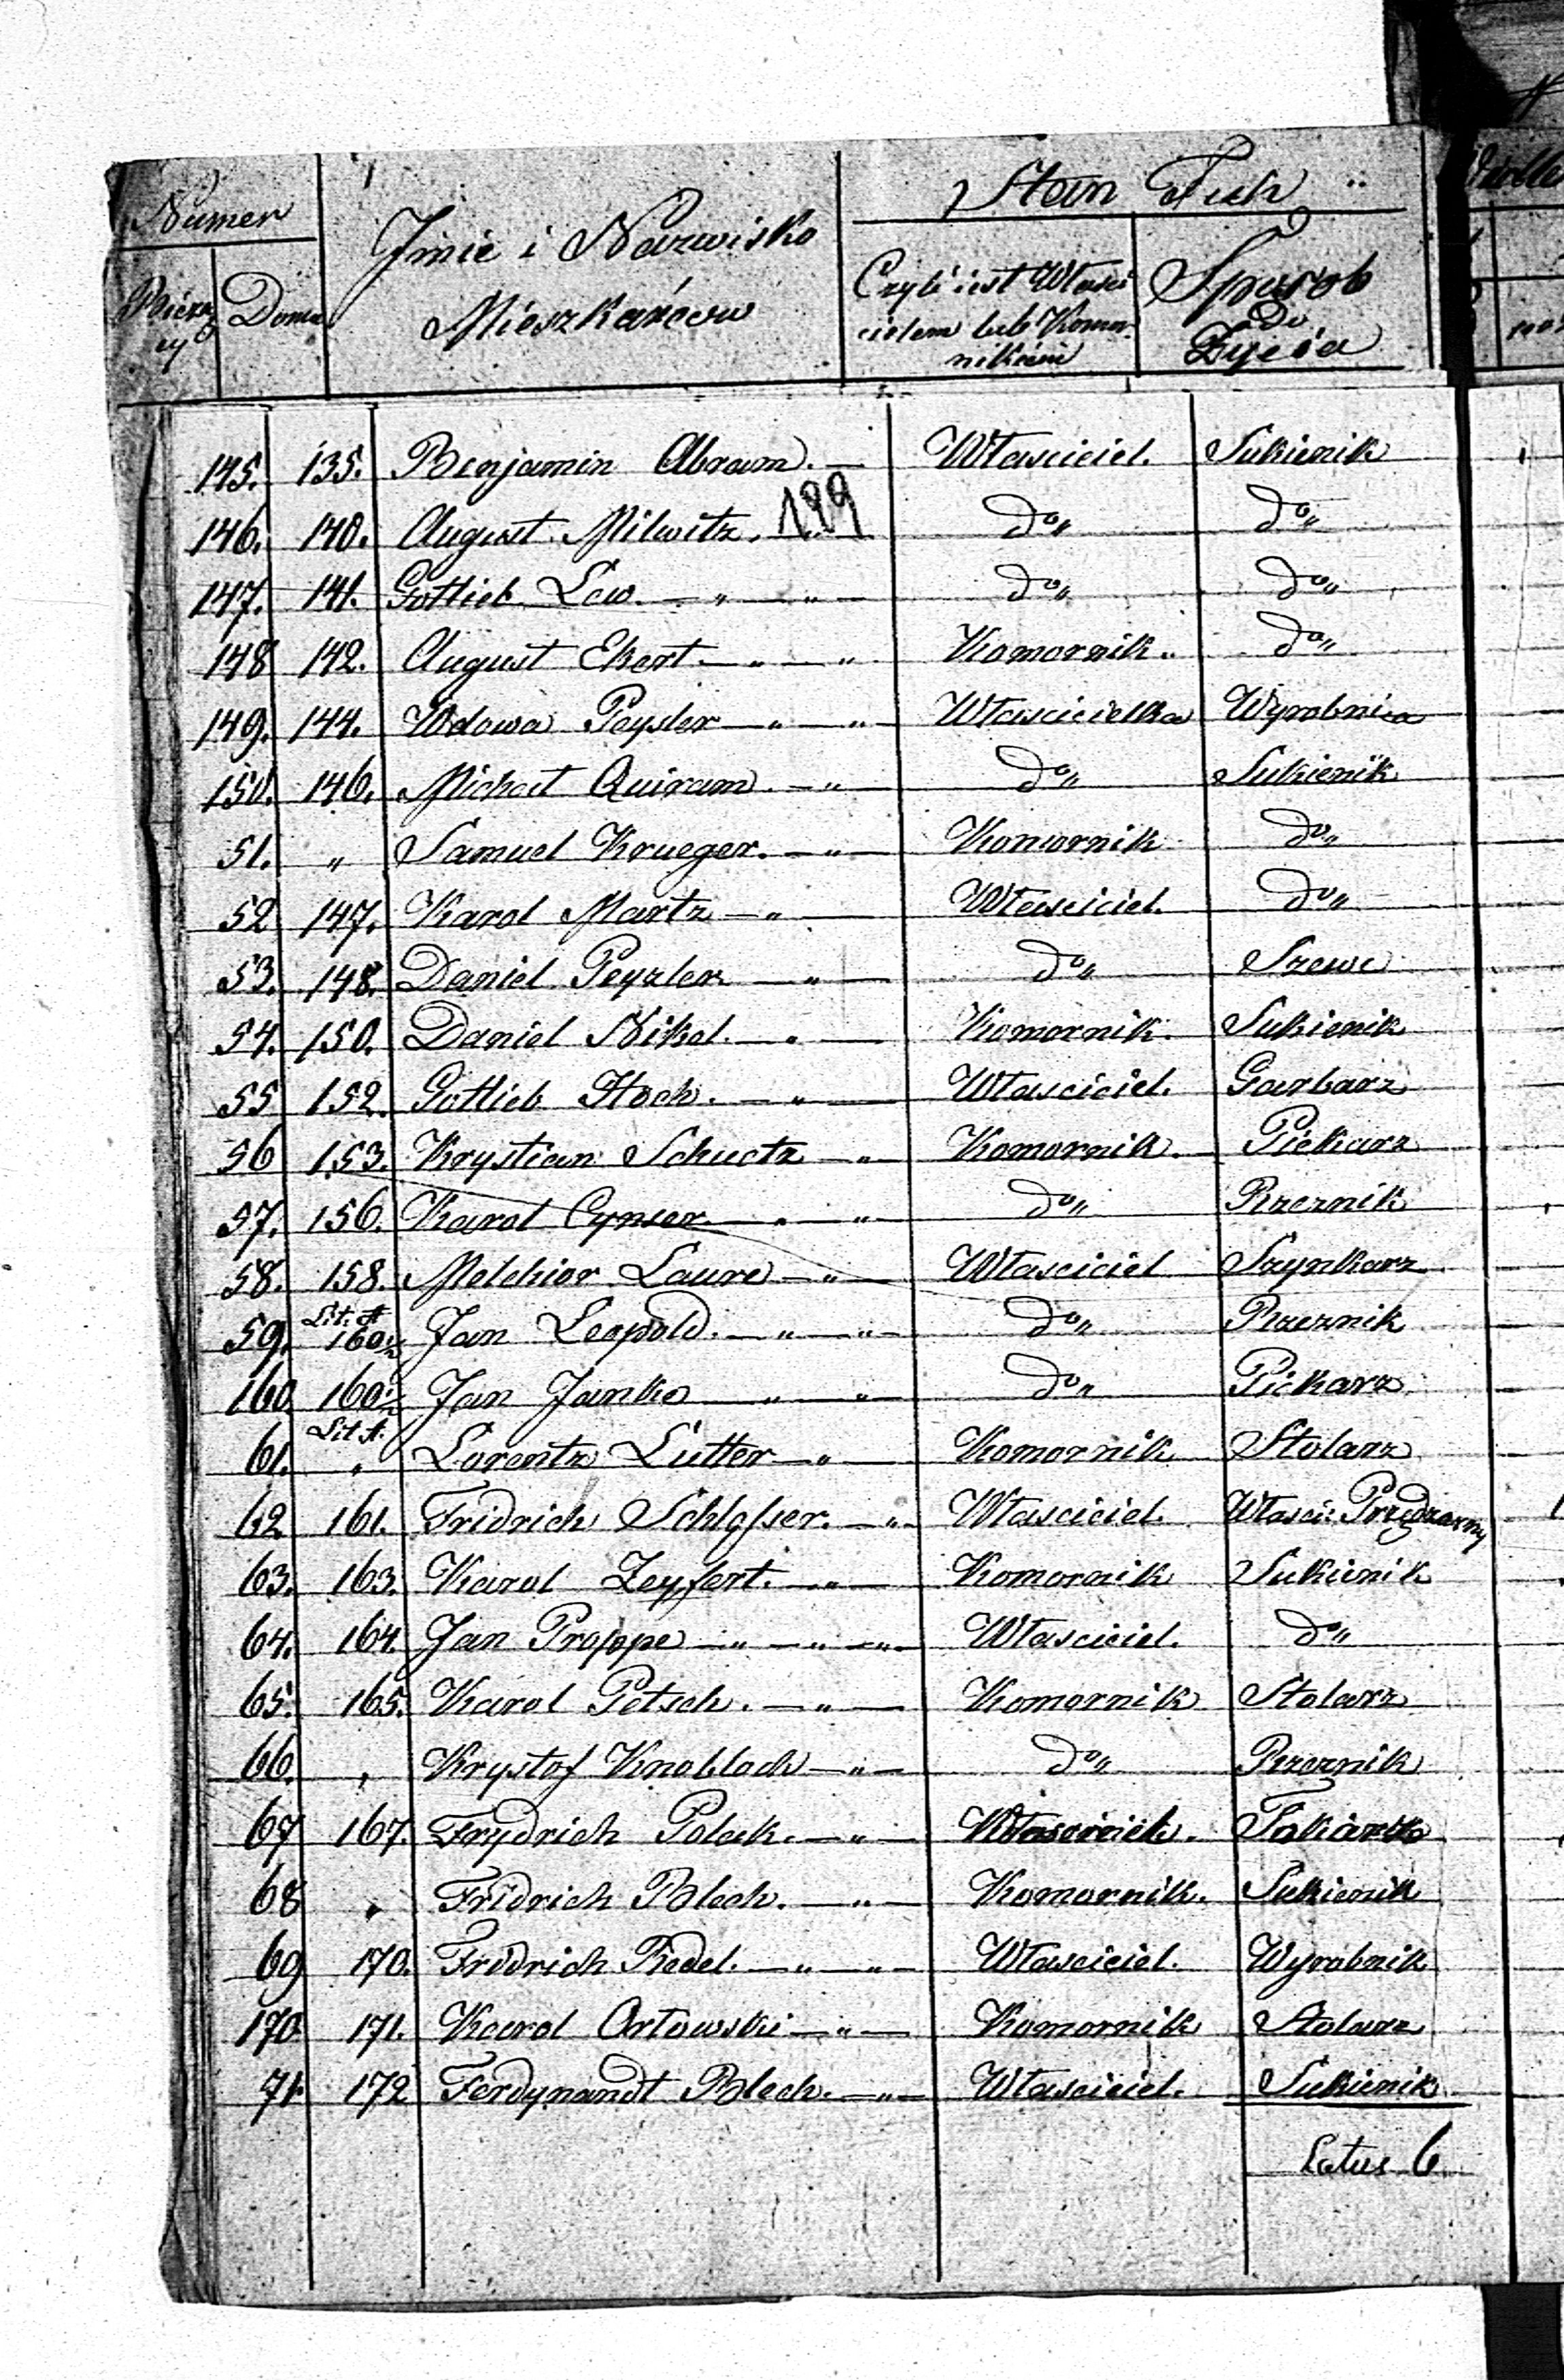 Numer
Imie i Nazwisko
Mieszkańcow
Stan Tich
Bieżą
cy
Domu
Czyli iest Wlasci
cielem lub Komor
nikiem
Sposob
do
Życia
145. 135. Benjamin Abram. Wlasciciel. Sukienik
189
146. 140. August Milwitz. do do
147. 141. Gottlieb Lew. — " — " — do do
148 142. August Ekert — " — " Komornik. do
149. 144. Wdowa Peysler — " — " — Wlascicielka Wyrobnica
150. 146. Michael Quiram. — " — do Sukienik
51. " Samuel Krueger. — " — Komornik do
52 147. Karol Martz — " — Wlasciciel. do
53. 148. Daniel Peyzler — " — do Szewc
54. 150. Daniel Nikel. — " — Komornik. Sukienik
55 152. Gotlieb Hoch. — " — Wlasciciel. Garbarz
56 153. Krystian Schuetz — " — Komornik. Piekarz
57. 156. Karol Cynser — " — " — do Rzeznik
58. 158. Melchior Laure — " — Wlasciciel Szynkarz
59. Lit. A 160½ Jan Leopold. — " — " — do Rzeznik
160 160½ Jan Janke — " — " — do Piekarz
61. Lit A. " Lorentz Lutter — " — Komornik Stolarz
62 161. Fridrich Schlosser. — " — Wlasciciel. Wlasci: Przędzarny
63. 163. Karol Zeyfert. — " — Komornik Sukienik
64. 164. Jan Proppe — " — " — " — Wlasciciel. do
65. 165. Karol Petsch. — " — Komornik Stolarz
66. " Krystof Knobloch — " — do Rzeznik
67 167. Frydrich Polack. — " — Wlasciciel. Tokarz
68 " Fridrich Blech. — " — Komornik. Sukienik
69 170. Fridrich Redel. — " — " — Wlasciciel. Wyrobnik
170 171. Karol Orlowski — " — Komornik Stolarz
71. 172 Ferdynandt Blech. — " — Wlasciciel. Sukienik
Latus 6